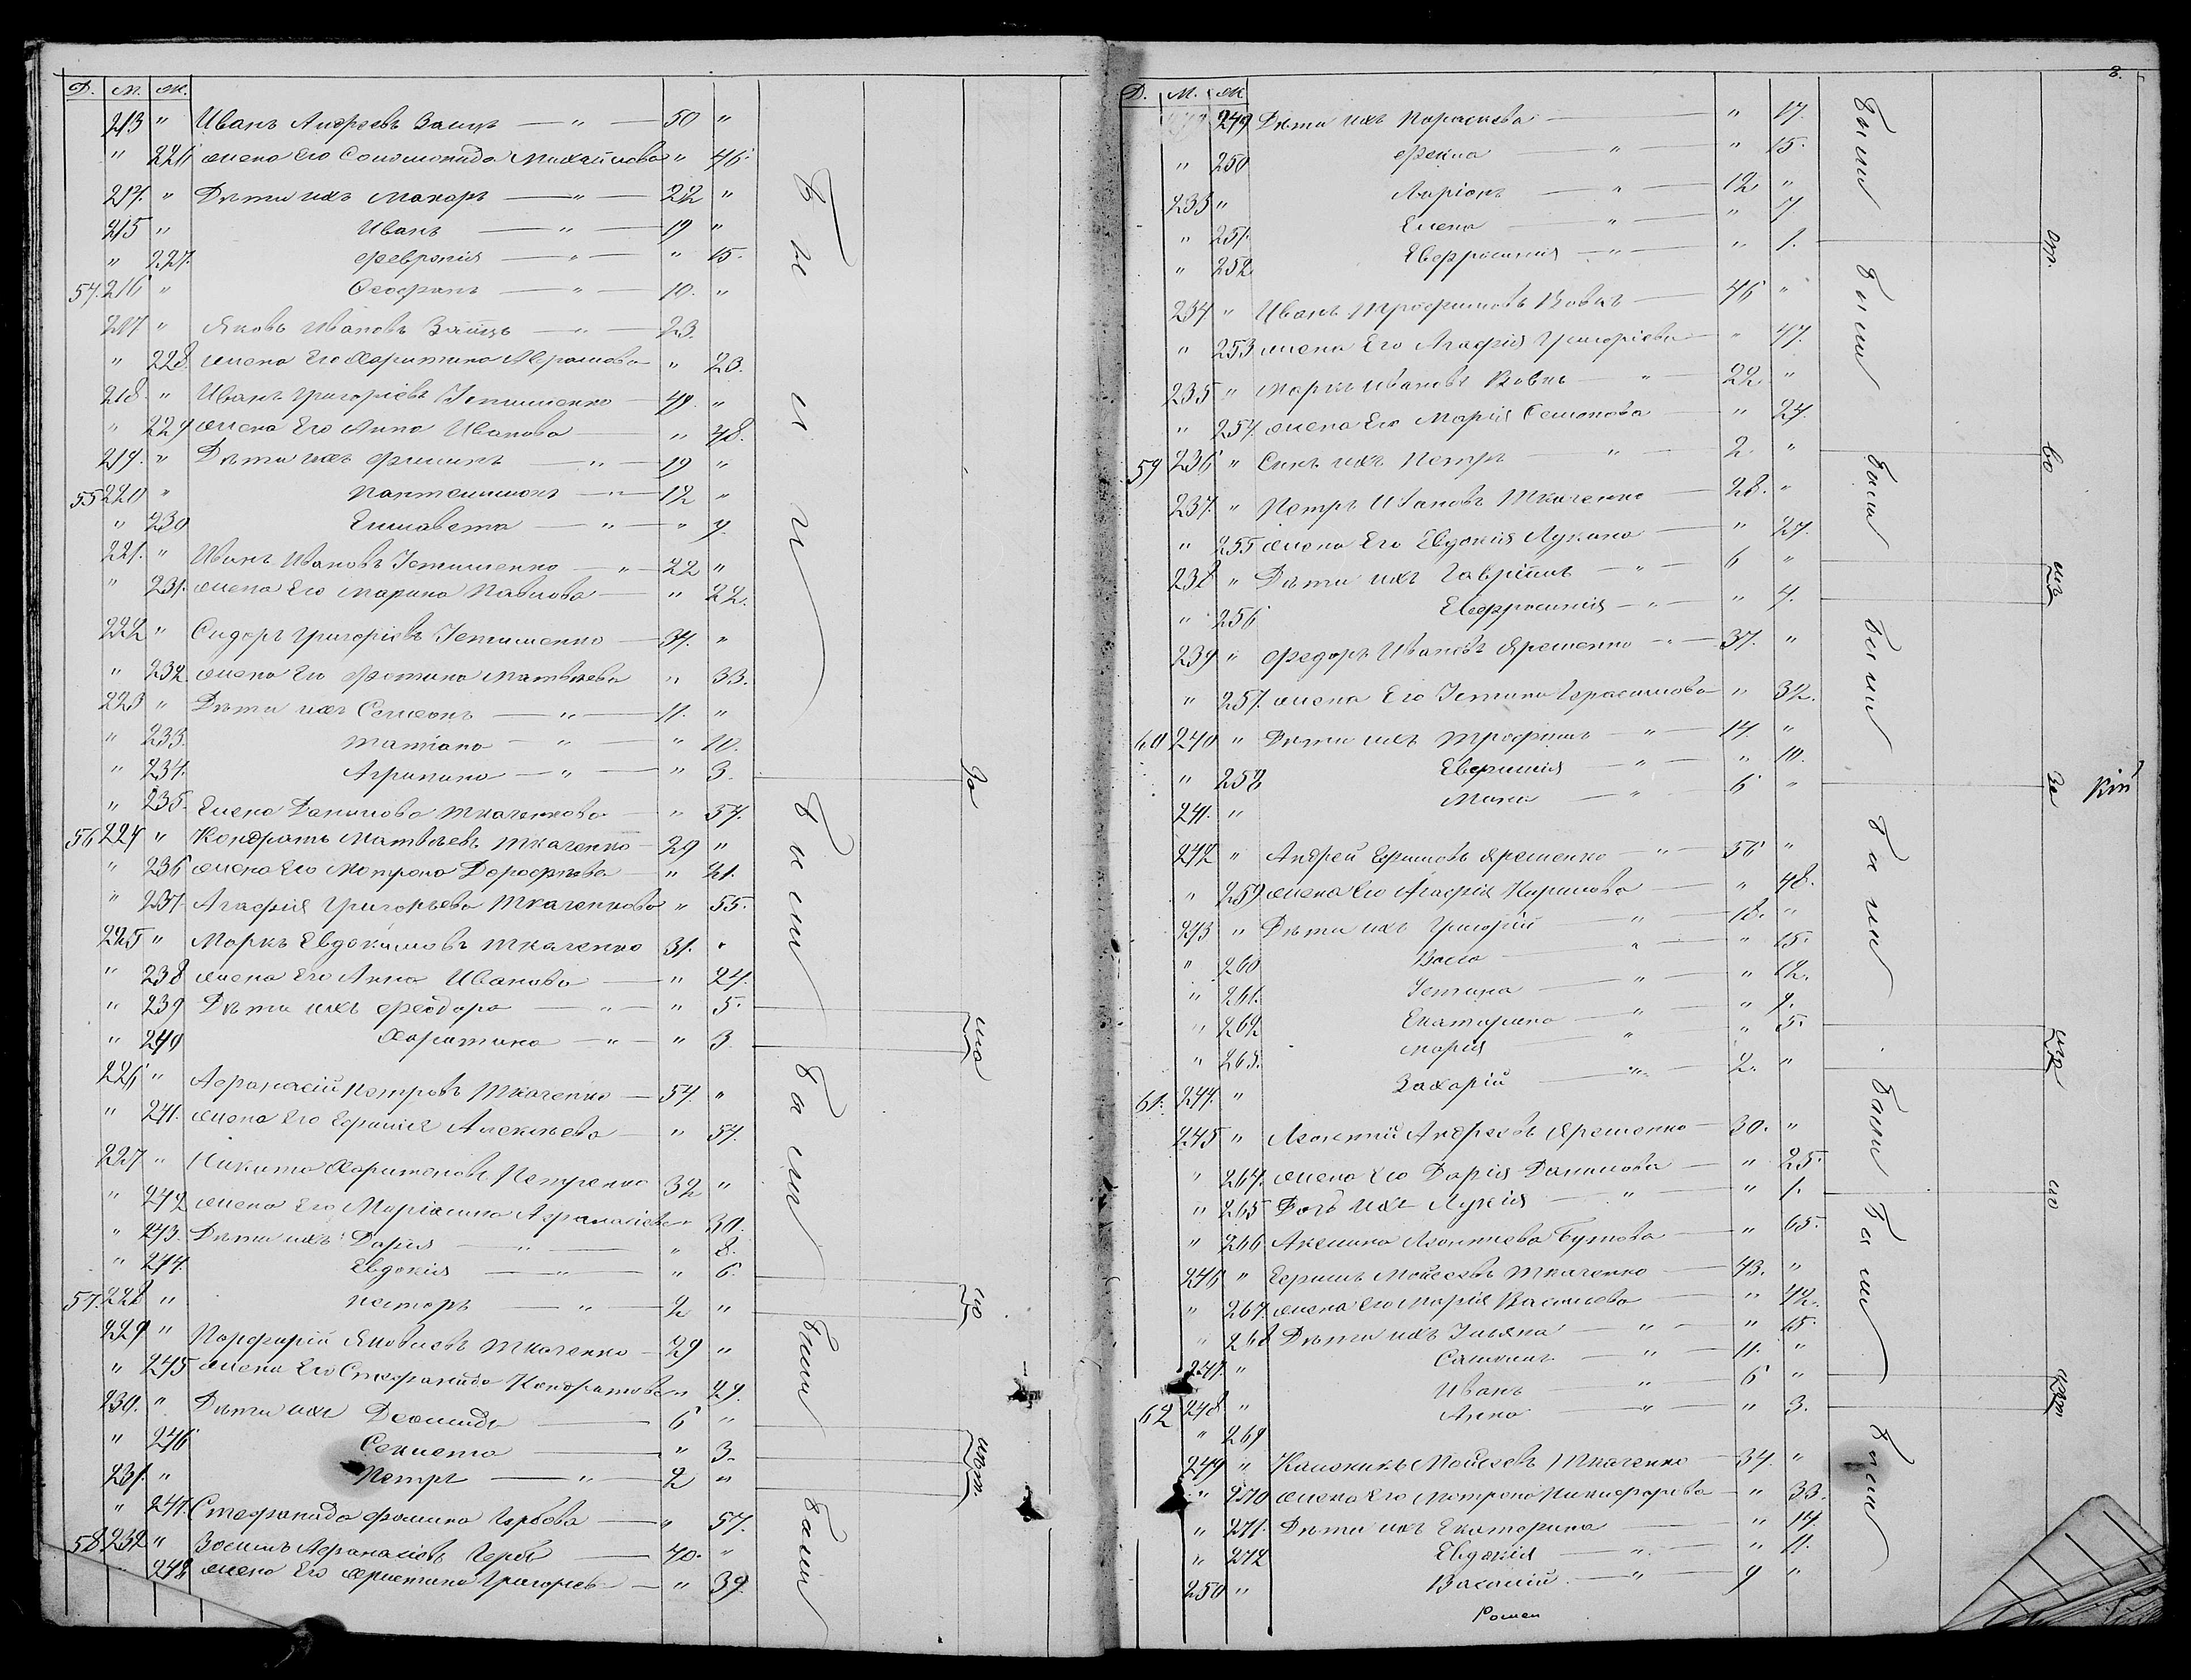 Д. М. Ж.
213 " Иванъ Андреевъ Заицъ — " — 50 "
" 226 жена Его Соломонида Михайлова " 46.
214. " Дѣти ихъ Макаръ — " — 22 "
215 " Иванъ — " — 19 "
" 227. Февронія — " — " 15.
54. 216 " Феофанъ — " — 10. "
217 " Яковъ Ивановъ Заицъ — " — 23.
" 228. жена Его Харитина Абрамова " 23.
218. " Иванъ Григоріевъ Устименко — 49. "
" 229 жена Его Анна Иванова — " 48.
219. " Дѣти ихъ Филипъ — " — 19 "
55 220 " Пантелимонъ — " — 12 "
" 230 Елисавета — " — " 9.
221. " Иванъ Ивановъ Устименко — " — 22 "
" 231. жена Его Марина Павлова — " 22.
222 " Сидоръ Григоріевъ Устименко — 34. "
" 232. жена Его Фотина Матвѣева " 33.
223 " Дѣти ихъ Семенъ — " — 11. "
" 233. Татіана — " — " 10.
" 234. Агрипина — " — " 3.
" 235. Елена Данилова Ткаченкова — " 57.
56 224 " Кондратъ Матвѣевъ Ткаченко — 29 "
" 236 жена Его Мотрона Дорофѣева — " 21.
" 237. Агафія Григорьева Ткаченкова " 55.
225 " Маркъ Евдокимовъ Ткаченко 31. "
" 238 жена Его Анна Иванова — " 24.
" 239 Дѣти ихъ Феодора — " — " 5.
" 240 Харитина — " — " 3.
226 " Афанасій Петровъ Ткаченко — 54. "
" 241. жена Его Ефимія Алексѣева — " 54.
227 " Никита Харитоновъ Петренко 32 "
" 242 жена Его Маріамна Афанасіев " 30.
" 243. Дѣти ихъ Дарія — " — " 8.
" 244. Евдокія — " — " 6.
57. 228 " Несторъ — " — 2 "
229 " Порфирій Яковлевъ Ткаченко — 29 "
" 245 жена Его Стефанида Кондратова " 29.
230. " Дѣти ихъ Діомидъ — 6 "
" 246 — " 3.
231. " Петръ — " — 2 "
" 247. Стефанида Фомина — " 57.
58 232 " Зосимъ Афанасіевъ — 40. "
248 жена Его Христина Григорьев — " 39.
Были
Были
Были
Были
Были
За
ѣю
ію
8.
Д. М. Ж.
249 Дѣти ихъ Параскева — " 17.
" 250 Фекла — " — " 15.
233 " Ларіонъ — " — 12. "
" 251. Елена — " — " 7.
" 252 Евфросинія — " — " 1.
234 " Иванъ Трофимовъ Вовкъ — 46 "
" 253 жена Его Агафія Григоріева — " 47.
235 " Маркъ Ивановъ Вовкъ — " — 22. "
" 254. жена Его Марія Семенова — " 24.
59 236 " Сынъ ихъ Петръ — " — 2. "
237. " Петръ Ивановъ Ткаченко — 28. "
" 255 жена Его Евдокія Лукина — " 27.
238 " Дѣти ихъ Гавріилъ — " — 6 "
" 256 Евфросинія — " — " 4.
239 " Федоръ Ивановъ Яременко — " — 37. "
" 257. жена Его Устина Герасимова — " 32.
60 240 " Дѣти ихъ Трофимъ — " — 14. "
" 258 Ефимія — " — " 10.
241. " Мина — " — 6 "
242 " Андрей Ефимовъ Яременко — " — 56 "
" 259 жена Его Агафія Кирилова — " 48.
243 " Дѣти ихъ Григорій — " — 18. "
" 260 Васса — " — " 15.
" 261. Устина — " — " 12.
" 262 Екатерина — " — " 9.
" 263. Марія — " — " 5.
61. 244. " Захарій — " — 2. "
245 " Леонтій Андреевъ Яременко — 30. "
" 264. жена Его Дарія Данилова — " 25.
" 265 Дочь ихъ Лукія — " — " 1.
" 266 Акилина Леонтиева Бутова — " 65.
246 " Ефимъ Мойсеевъ Ткаченко — 43. "
" 267. жена Его Марія Васильева — " 42.
" 268 Дѣти ихъ Ульяна — " — " 15.
247. " — " — 11. "
62 248 " Иванъ — " — 6 "
" 269 Анна — " — " 3.
249 " Калиникъ Мойсеевъ Ткаченко — 34. "
" 270 жена Его Мотрона Никифорова — " 33.
" 271. Дѣти ихъ Екатерина — " 14.
" 272 Евдокія — " — " 11.
250 " Василій — " — 9 "
Роман
Были
Были
Были
Были
Были
Были
Были
Были
Во
За
ію
кій